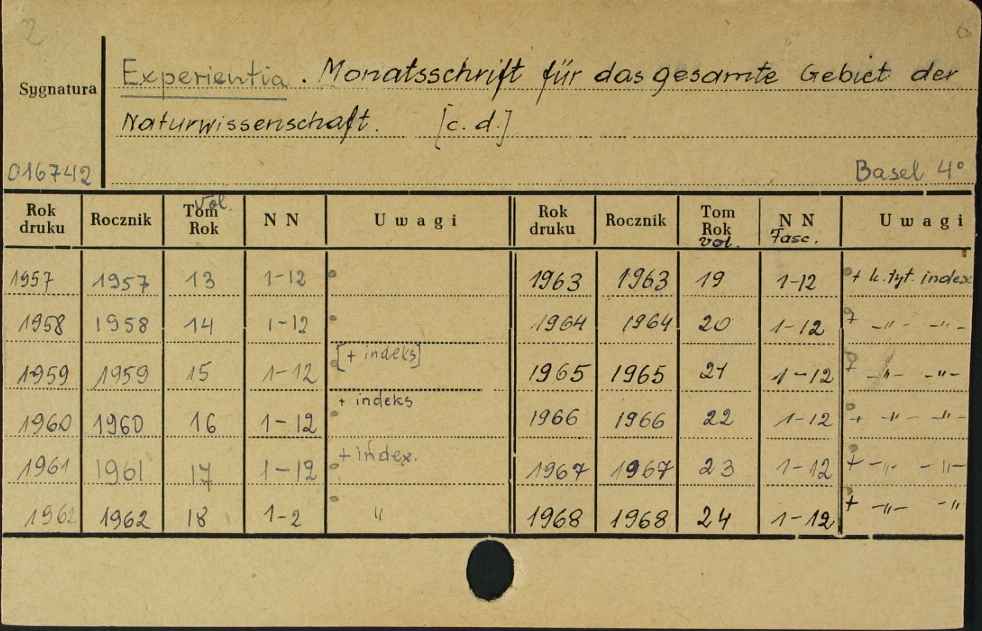 2
Sygnatura
Experientia. Monatsschrift für das gesamte Gebiet der
Naturwissenschaft. [c. d.]
016742
Basel 4°
Rok druku Rocznik Tom Vol. Rok N N Uwagi Rok druku Rocznik Tom Rok vol. N N Fasc. Uwagi
1957 1957 13 1-12 1963 1963 19 1-12 + k. tyt. index
1958 1958 14 1-12 1964 1964 20 1-12 -"- -"-
1959 1959 15 1-12 [+ indeks] 1965 1965 21 1-12 -"- -"-
1960 1960 16 1-12 + indeks 1966 1966 22 1-12 + -"- -"-
1961 1961 17 1-12 + index. 1967 1967 23 1-12 + -"- -"-
1962 1962 18 1-2 " 1968 1968 24 1-12 + -"- -"